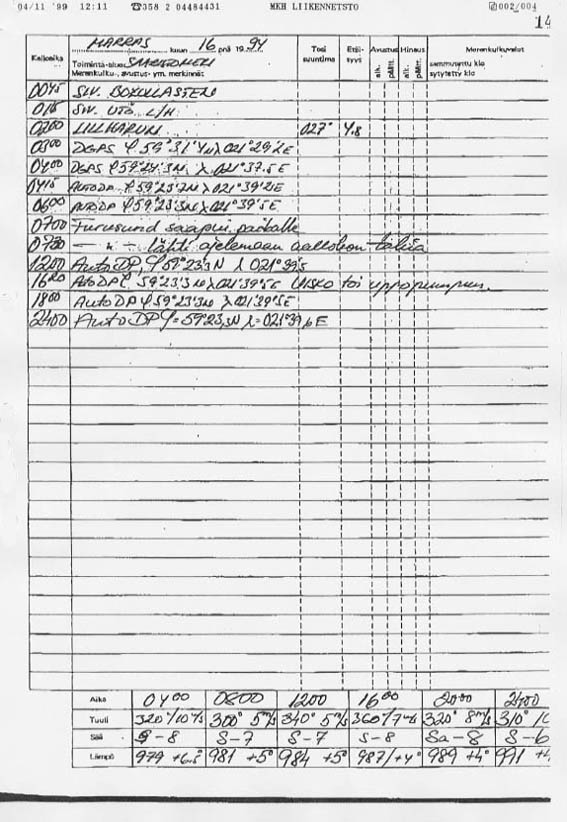 04/11 '99 12:11 ☎358 2 04484431 MKH LIIKENNETSTO 002/004
14
MARRAS kuun 16 pnä 1994
Kelloaika Toimintа-alue SAARISTOMERI Tosi suuntima Etäi- syys Avustus Hinaus Merenkulkuvalot
Merenkulku-, avustus- ym. merkinnät alk. päätt. alk. päätt. sammutettu klo sytytetty klo
0045 SIV. BOKULLASTEN
0115 SIV. UTÖ L/H
0200 LILLHARUN 027° 4.8
0300 DGPS φ 59°31'4N λ 021°29'2E
0400 DGPS φ 59°24'3N λ 021°37.5E
0415 AUTO DP φ 59°23'7N λ 021°39'2E
0600 AUTO DP φ 59°23'3N λ 021°39'5E
0700 Furusund saapui paikalle
0730 — " — lähti ajelemaan aallokon takia
1200 Auto DP, φ 59°23'3N λ 021°39'5
1620 Auto DP φ 59°23'3N λ 021°39'5E Uisko toi uppopumpun.
1800 Auto DP φ 59°23'3N λ 021°39'5E
2400 Auto DP φ=59°23,3N λ=021°39,6E
Aika 0400 0800 1200 1600 2000 2400
Tuuli 320°/10m/s 300° 5m/s 340° 5m/s 360°/7m/s 320° 8m/s 310° 10
Sää S-8 S-7 S-7 S-8 Sa-8 S-6
Lämpö 979 +6.5° 981 +5° 984 +5° 987/+4° 989 +4° 991 +4